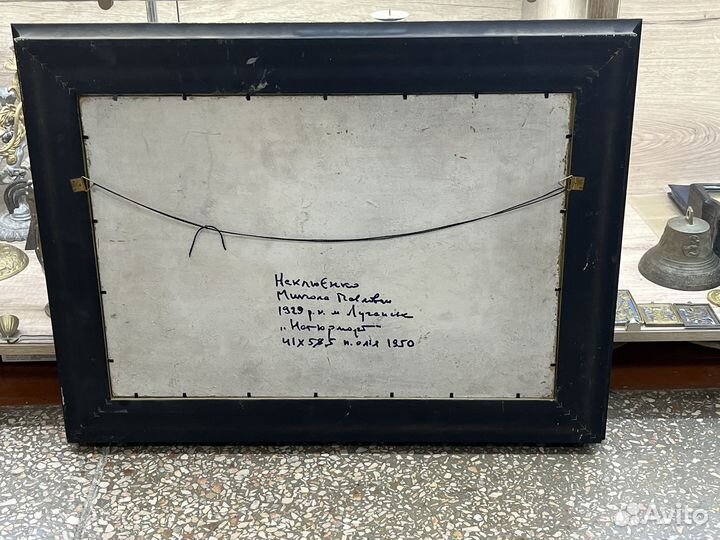 Неклюєнко
Микола Павлович
1929 р.н. м Луганськ
„Натюрморт"
41х58,5 к. олія 1950
Avito